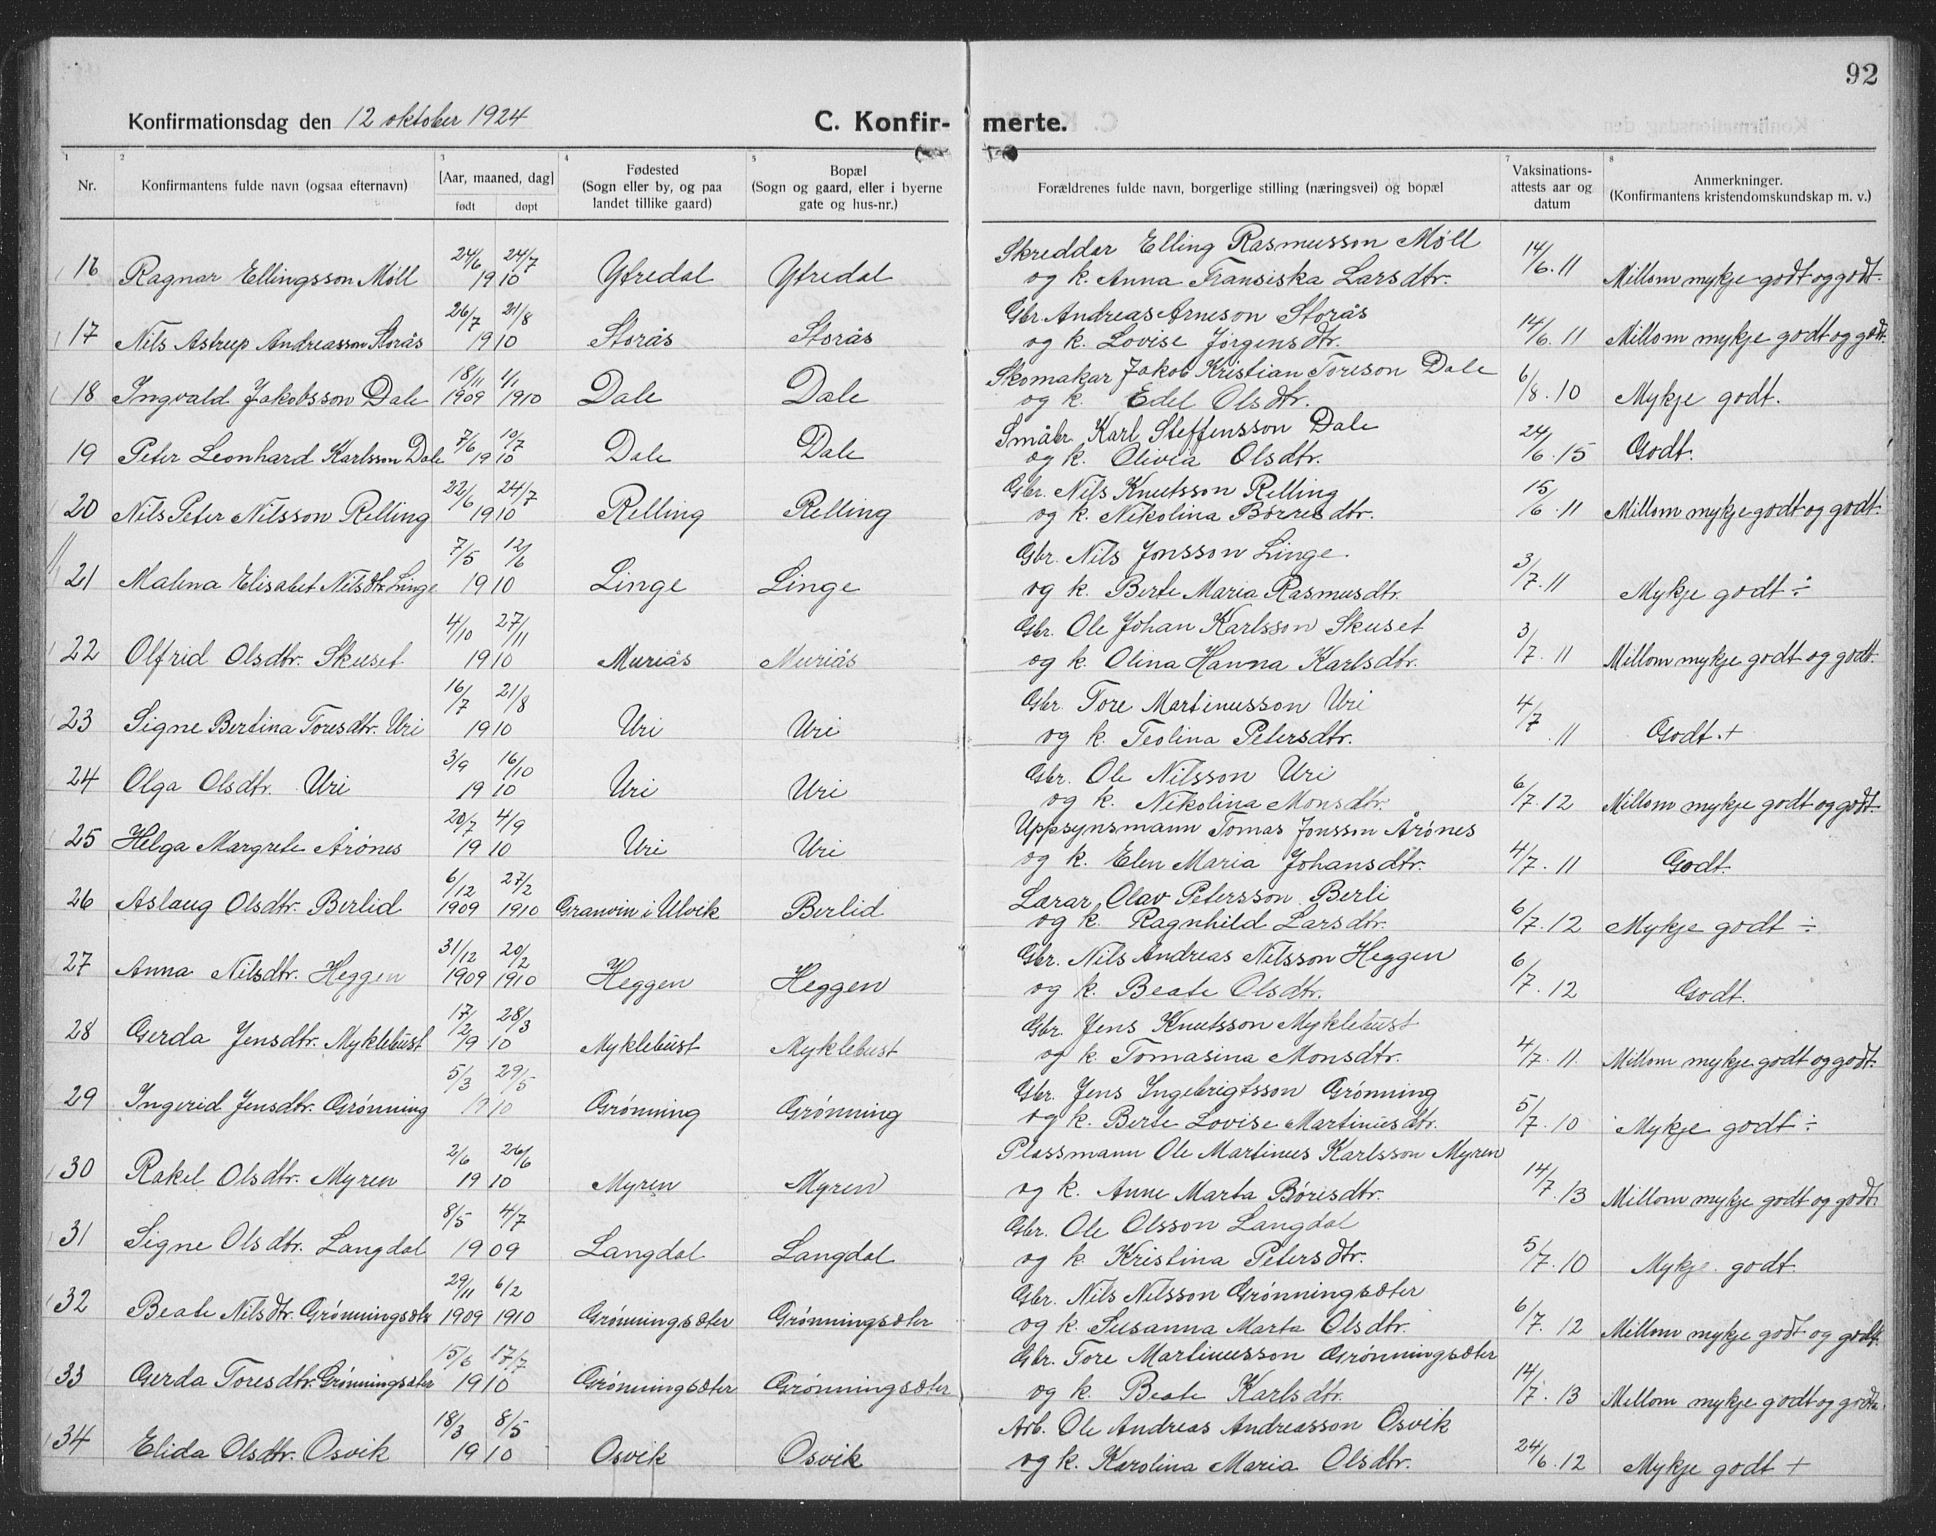 92
Konfirmationsdag den 12 oktober 1924 C. Konfirmerte.
1 2 3 4 5 7 8
Nr. Konfirmantens fulde navn (ogsaa efternavn) [Aar, maaned, dag] født døpt Fødested (Sogn eller by, og paa landet tillike gaard) Bopæl (Sogn og gaard, eller i byerne gate og hus-nr.) Forældrenes fulde navn, borgerlige stilling (næringsvei) og bopæl Vaksinations-attests aar og datum Anmerkninger. (Konfirmantens kristendomskundskap m. v.)
16 Ragnar Ellingsson Møll 24/6 24/7 1910 Yfredal Yfredal Skreddar Elling Rasmusson Møll 14/6.11 Millom mykje godt og godt.
og k. Anna Fransiska Larsdtr.
17 Nils Astrup Andreasson Storås 26/7 21/8 1910 Storås Storås Gbr. Andreas Arneson Storås 14/6.11 Millom mykje godt og godt.
og k. Lovise Jørgensdtr.
18 Ingvald Jakobsson Dale 18/11 1909 1/1 1910 Dale Dale Skomakar Jakob Kristian Toreson Dale 6/8.10 Mykje godt.
og k. Edel Olsdtr.
19 Peter Leonhard Karlsson Dale 7/6 10/7 1910 Dale Dale Småbr. Karl Steffensson Dale 24/6.15 Godt.
og k. Olivia Olsdtr.
20 Nils Peter Nilsson Relling 22/6 24/7 1910 Relling Relling Gbr. Nils Knutsson Relling 15/6.11 Millom mykje godt og godt.
og k. Nikolina Børresdtr.
21 Malena Elisabet Nilsdtr. Linge 7/5 12/6 1910 Linge Linge Gbr. Nils Jonsson Linge. 3/7.11 Mykje godt ÷
og k. Berte Maria Rasmusdtr.
22 Olfrid Olsdtr. Skuset 4/10 27/11 1910 Muriås Muriås Gbr. Ole Johan Karlsson Skuset 3/7.11 Millom mykje godt og godt.
og k. Olina Hanna Karlsdtr.
23 Signe Bertina Toresdtr. Uri 16/7 21/8 1910 Uri Uri Gbr. Tore Martinusson Uri 4/7.11 Godt. +
og k. Teolina Petersdtr.
24 Olga Olsdtr. Uri 3/9 16/10 1910 Uri Uri Gbr. Ole Nilsson Uri 6/7.12 Millom mykje godt og godt.
og k. Nikolina Monsdtr.
25 Helga Margrete Årønes 20/7 4/9 1910 Uri Uri Uppsynsmann Tomas Jonsson Årønes 4/7.11 Godt.
og k. Elen Maria Johansdtr.
26 Aslaug Olsdtr. Berlid 6/12 1909 27/2 1910 Granvin i Ulvik Berlid Lærar Olav Petersson Berli 6/7.12 Mykje godt ÷
og k. Ragnhild Larsdtr.
27 Anna Nilsdtr. Heggen 31/12 1909 20/2 1910 Heggen Heggen Gbr. Nils Andreas Nilsson Heggen 6/7.12 Godt.
og k. Beate Olsdtr.
28 Gerda Jensdtr. Myklebust 17/2 28/3 1910 Myklebust Myklebust Gbr. Jens Knutsson Myklebust 4/7.11 Millom mykje godt og godt.
og k. Tomasina Monsdtr.
29 Ingerid Jensdtr. Grønning 5/3 29/5 1910 Grønning Grønning Gbr. Jens Ingebrigtsson Grønning 5/7.10 Mykje godt ÷
og k. Berte Lovise Martinusdtr.
30 Rakel Olsdtr. Myren 2/6 26/6 1910 Myren Myren Plassmann Ole Martinus Karlsson Myren 14/7.13 Millom mykje godt og godt.
og k. Anne Marta Børesdtr.
31 Signe Olsdtr. Langdal 8/5 4/7 1909 Langdal Langdal Gbr. Ole Olsson Langdal 5/7.10 Mykje godt.
og k. Kristina Petersdtr.
32 Beate Nilsdtr. Grønningsæter 29/11 1909 6/2 1910 Grønningsæter Grønningsæter Gbr. Nils Nilsson Grønningsæter 6/7.12 Millom mykje godt og godt.
og k. Susanna Marta Olsdtr.
33 Gerda Toresdtr. Grønningsæter 15/6 17/7 1910 Grønningsæter Grønningsæter Gbr. Tore Martinusson Grønningsæter 14/7.13 Millom mykje godt og godt.
og k. Beate Karlsdtr.
34 Elida Olsdtr. Osvik 18/3 8/5 1910 Osvik Osvik Arb. Ole Andreas Andreasson Osvik 24/6.12 Mykje godt +
og k. Karolina Maria Olsdtr.